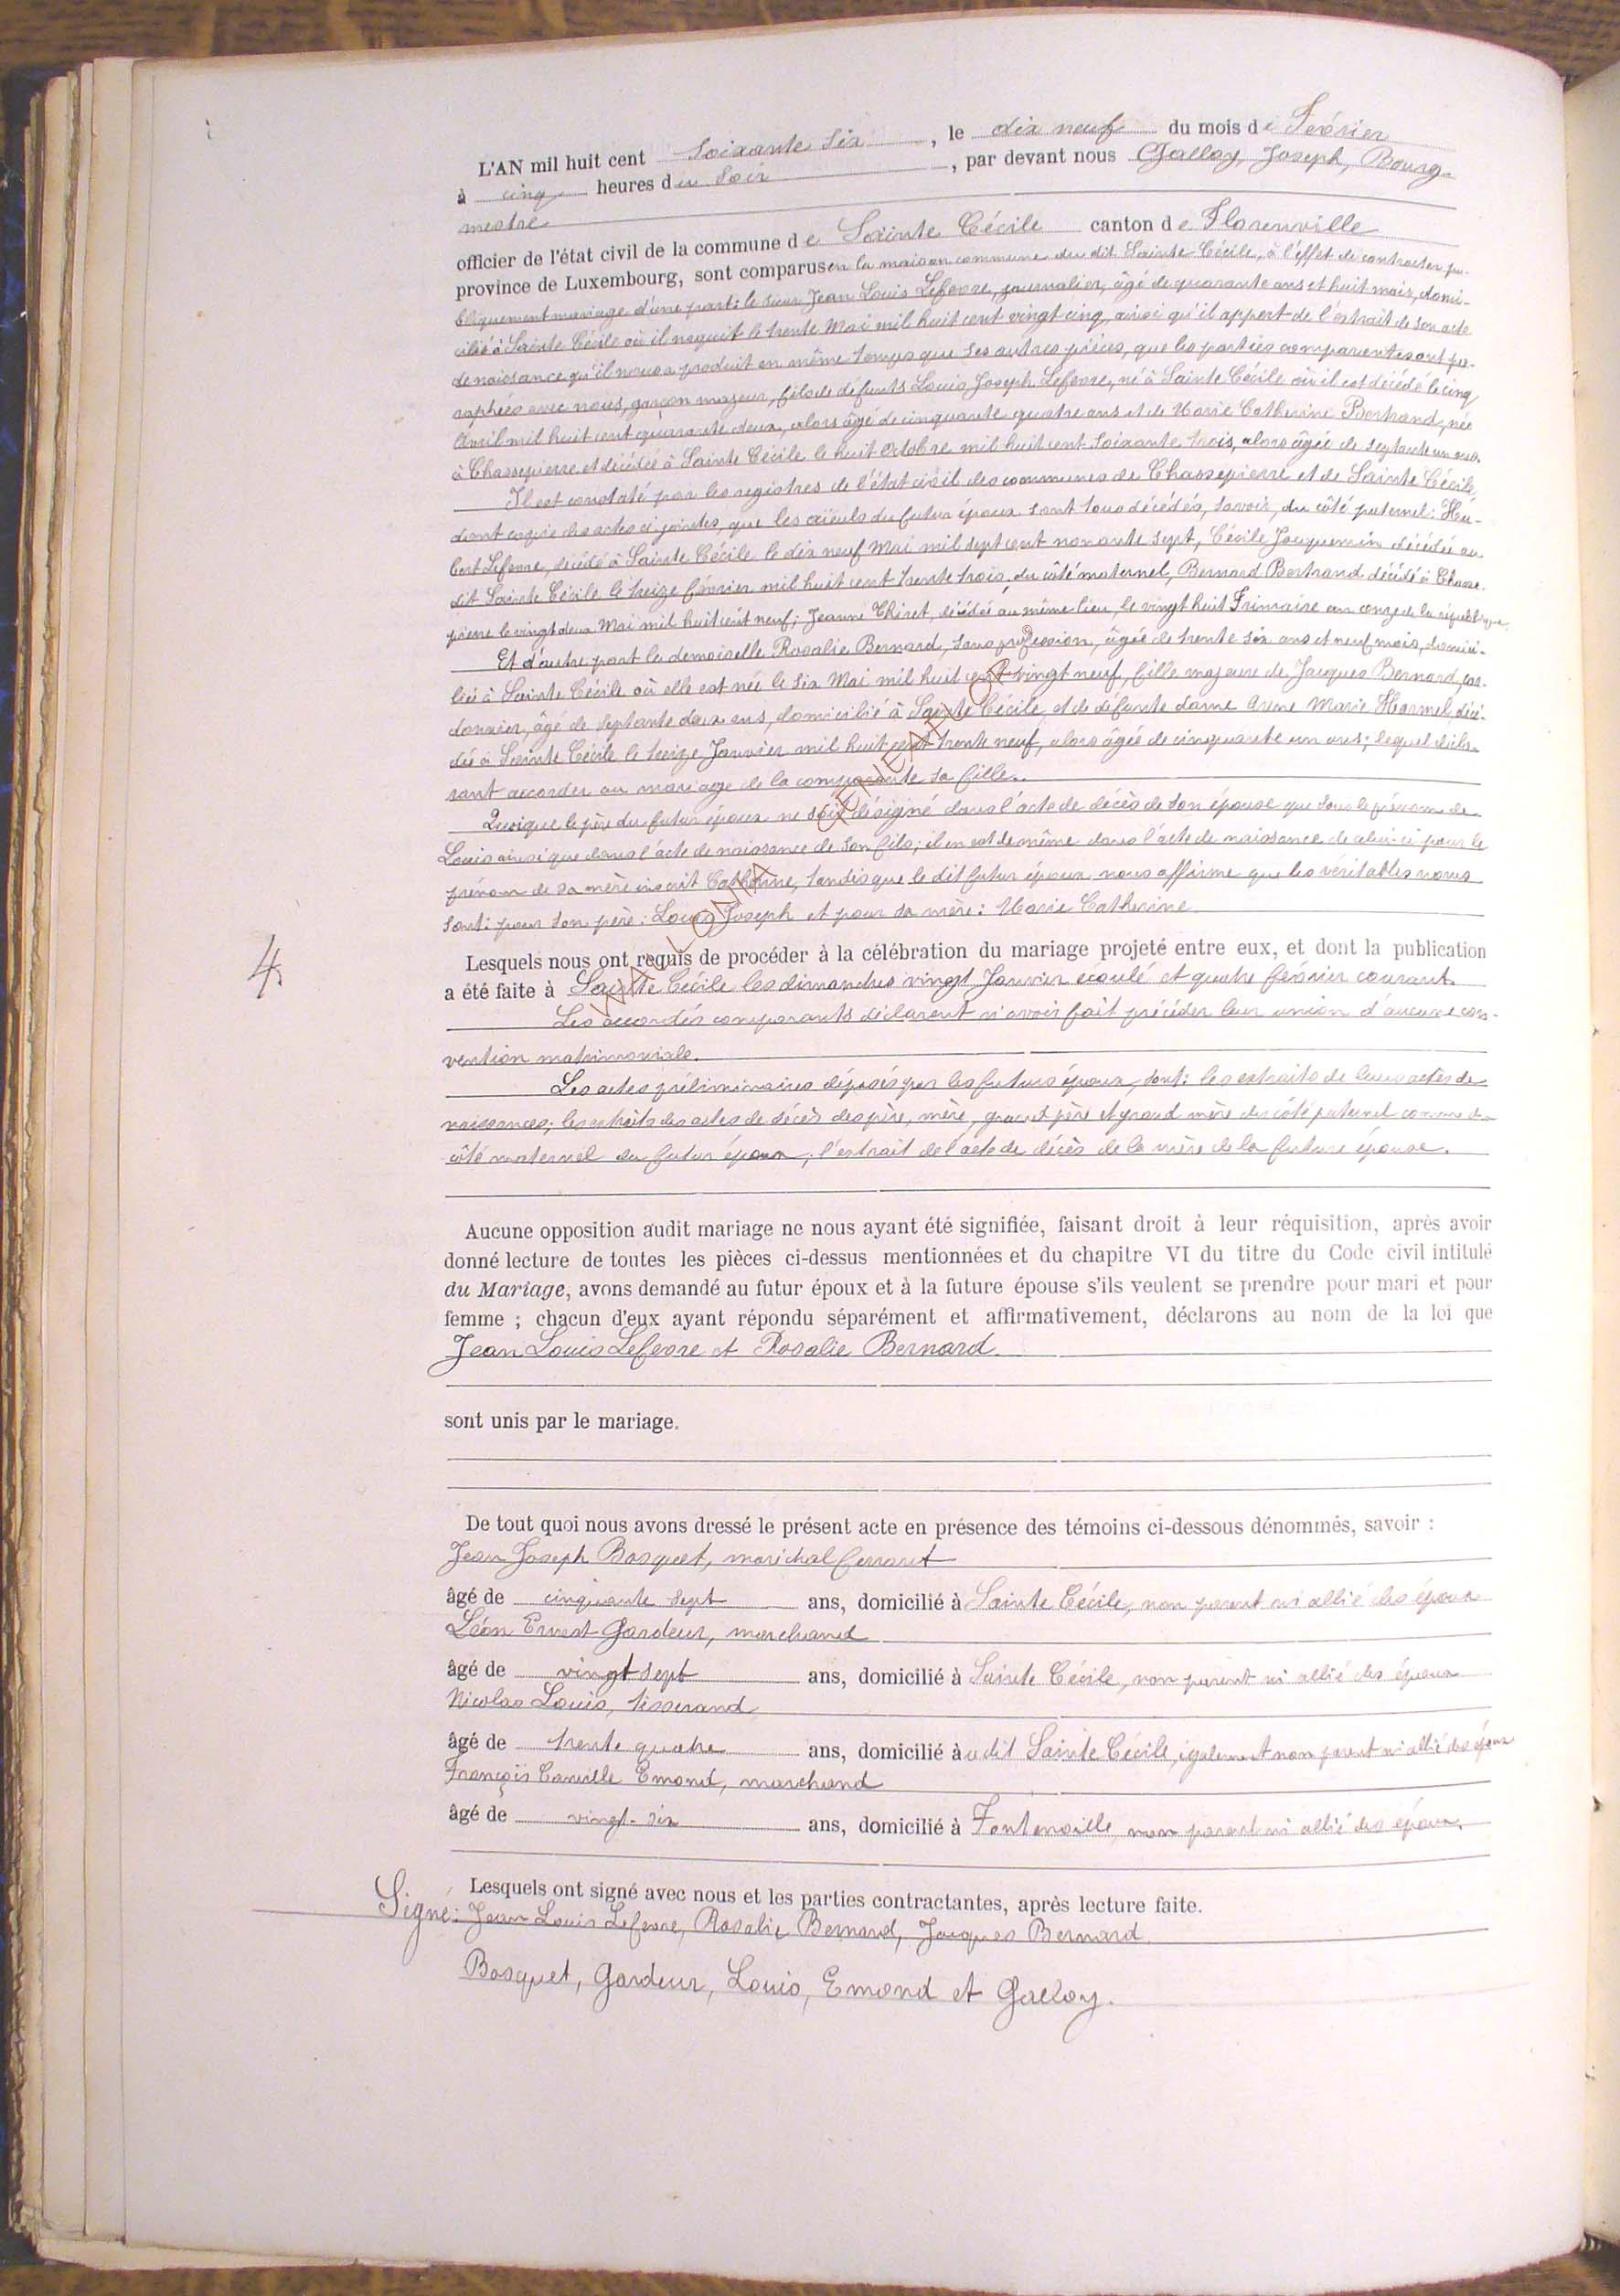 L'AN mil huit cent soixante six, le dix neuf du mois de Février
à cinq heures du soir, par devant nous Galloy, Joseph, Bourg-
mestre
officier de l'état civil de la commune de Sainte Cécile canton de Florenville
province de Luxembourg, sont comparus en la maison commune du dit Sainte Cécile, à l'effet de contracter pu-
bliquement mariage d'une part: le sieur Jean Louis Lefevre, journalier, âgé de quarante ans et huit mois, domi-
cilié à Sainte Cécile où il naquit le trente Mai mil huit cent vingt cinq, ainsi qu'il appert de l'extrait de son acte
de naissance qu'il nous a produit en même temps que ses autres pièces, que les parties comparentes ont pa-
raphées avec nous, garçon majeur, fils de défunts Louis Joseph Lefevre, né à Sainte Cécile où il est décédé le cinq
Avril mil huit cent quarante deux, alors âgé de cinquante quatre ans et de Marie Catherine Bertrand, née
à Chassepierre et décédée à Sainte Cécile le huit Octobre mil huit cent soixante trois, alors âgée de septante un ans.
Il est constaté par les registres de l'état civil des communes de Chassepierre et de Sainte Cécile,
dont copie des actes ci jointes, que les aïeuls du futur époux sont tous décédés, savoir, du côté paternel: Hu-
bert Lefevre, décédé à Sainte Cécile le dix neuf Mai mil sept cent nonante sept, Cécile Jacquemin décédée au
dit Sainte Cécile le treize février mil huit cent trente trois, du côté maternel, Bernard Bertrand décédé à Chasse-
pierre le vingt deux Mai mil huit cent neuf; Jeanne Thiret, décédée au même lieu, le vingt huit Frimaire an onze de la république.
Et d'autre part la demoiselle Rosalie Bernard, sans profession, âgée de trente six ans et neuf mois, domici-
liée à Sainte Cécile où elle est née le six Mai mil huit cent vingt neuf, fille majeure de Jacques Bernard, cor-
donnier, âgé de septante deux ans, domicilié à Sainte Cécile, et de défunte dame Anne Marie Harmel, décé-
dée à Sainte Cécile le treize Janvier mil huit cent trente neuf, alors âgée de cinquante un ans; lequel décla-
rant accorder au mariage de la comparante sa fille.
Quoique le père du futur époux ne soit désigné dans l'acte de décès de son épouse que sous le prénom de
Louis ainsi que dans l'acte de naissance de son fils; il en est de même dans l'acte de naissance de celui-ci pour le
prénom de sa mère inscrit Catherine, tandis que le dit futur époux nous affirme que les véritables noms
sont: pour son père: Louis Joseph et pour sa mère: Marie Catherine
4
Lesquels nous ont requis de procéder à la célébration du mariage projeté entre eux, et dont la publication
a été faite à Sainte Cécile les dimanches vingt Janvier écoulé et quatre février courant.
Les accordés comparants déclarent n'avoir fait précéder leur union d'aucune con-
vention matrimoniale.
Les actes préliminaires déposés par les futurs époux, sont: les extraits de leurs actes de
naissances; les extraits des actes de décès des père, mère, grand père et grand mère du côté paternel comme du
côté maternel du futur époux; l'extrait de l'acte de décès de la mère de la future épouse.
Aucune opposition audit mariage ne nous ayant été signifiée, faisant droit à leur réquisition, après avoir
donné lecture de toutes les pièces ci-dessus mentionnées et du chapitre VI du titre du Code civil intitulé
du Mariage, avons demandé au futur époux et à la future épouse s'ils veulent se prendre pour mari et pour
femme ; chacun d'eux ayant répondu séparément et affirmativement, déclarons au nom de la loi que
Jean Louis Lefevre et Rosalie Bernard.
sont unis par le mariage.
De tout quoi nous avons dressé le présent acte en présence des témoins ci-dessous dénommés, savoir :
Jean Joseph Bosquet, maréchal ferrant
âgé de cinquante sept ans, domicilié à Sainte Cécile, non parent ni allié des époux
Léon Ernest Gardeur, marchand
âgé de vingt sept ans, domicilié à Sainte Cécile, non parent ni allié des époux
Nicolas Louis, tisserand
âgé de trente quatre ans, domicilié à udit Sainte Cécile, également non parent ni allié des époux
François Camille Emond, marchand
âgé de vingt-six ans, domicilié à Fontenoille, non parent ni allié des époux.
Lesquels ont signé avec nous et les parties contractantes, après lecture faite.
Signé: Jean Louis Lefevre, Rosalie Bernard, Jacques Bernard.
Bosquet, Gardeur, Louis, Emond et Galloy.